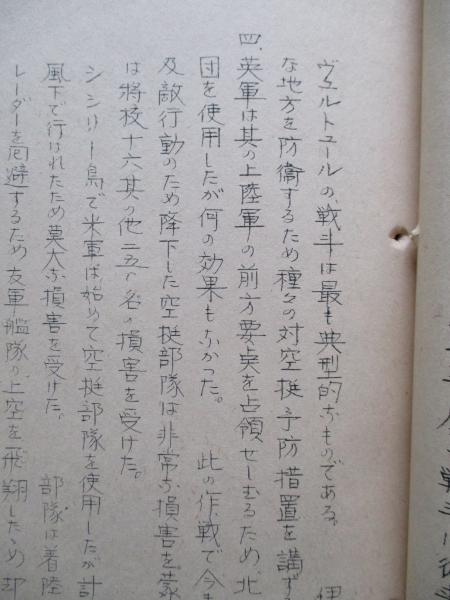 ヴェルトユールの戦斗は最も典型的なものである。 伊
な地方を防衛するため種々の対空挺予防措置を講ずる
四、英軍は其の上陸軍の前方要点を占領せしむるため、北
団を使用したが何の効果もなかった。 此の作戦で今ま
及敵行動のため降下した空挺部隊は非常な損害を蒙
は将校十六其の他二五〇名の損害を受けた。
シシリー島で米軍は始めて空挺部隊を使用したが計
風下で行はれたため莫大な損害を受けた。 部隊は着陸
レーダーを回避するため友軍艦隊の上空を飛翔したため却